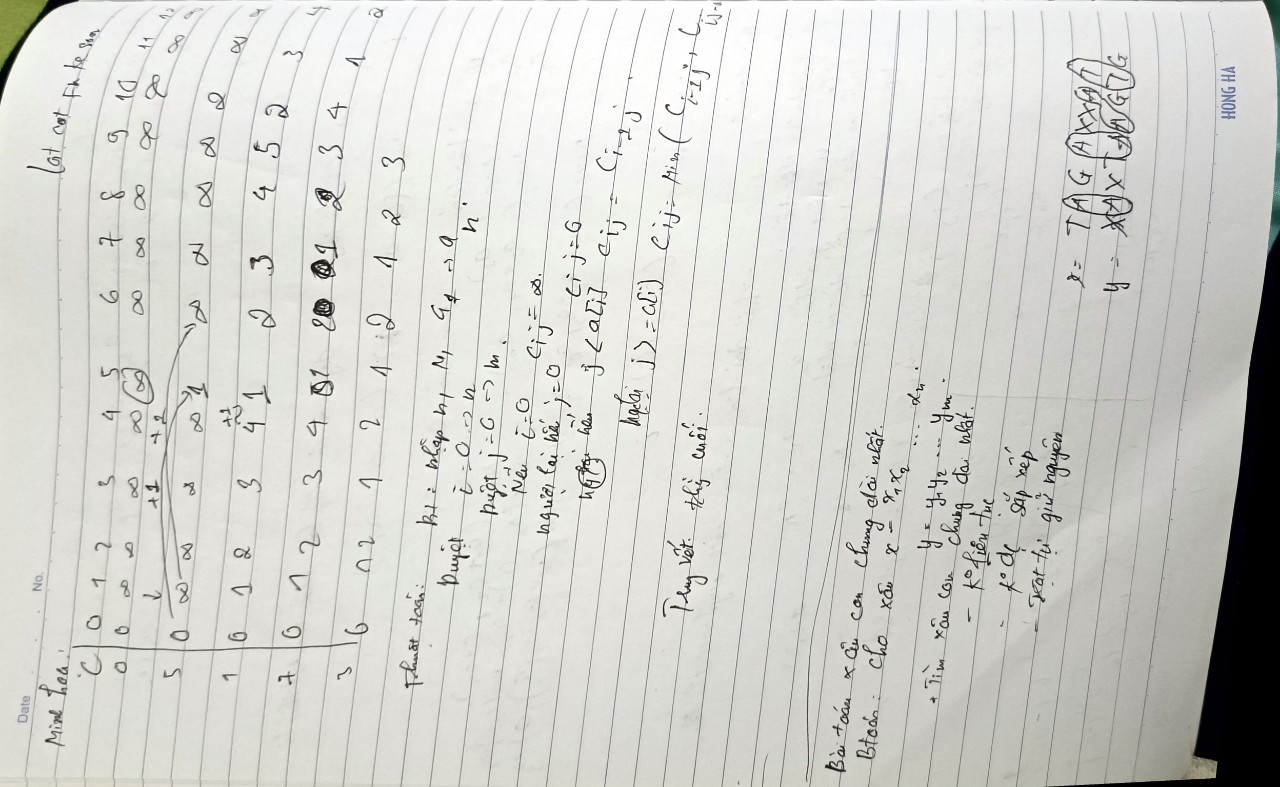 Date
No.
Minh họa:
C 0 1 2 3 4 5 6 7 8 9 10 11 12
0 0 ∞ ∞ ∞ ∞ ∞ ∞ ∞ ∞ ∞ ∞ ∞ ∞
+1 +2
5 0 ∞ ∞ ∞ ∞ 1 ∞ ∞ ∞ ∞ 2 ∞
+1
1 0 1 2 3 4 1 2 3 4 5 2 3 4
7 0 1 2 3 4 1 2 1 2 3 4 1 2
3 0 1 2 1 2 1 2 1 2 3
Thuật toán: B1: nhập n, M, a1 → an.
Duyệt i=0 → n
Duyệt j=0 → m.
Nếu i=0 Cij = ∞.
ngược lại nếu j=0 Cij=0
nếu j < a[i] Cij = Ci-1j.
j >= a[i] Cij = Min( Ci-1j,
Truy vết. cuối.
Bài toán xâu con chung dài nhất.
Btoán: Cho xâu x = x1x2 ... xn.
y = y1y2 ... ym.
+ Tìm xâu con chung dài nhất.
- k° liên tục
- k° đc sắp xếp
- trật tự giữ nguyên
x = T A G A X X A T
y = X A X T A A G T G
HONG HA